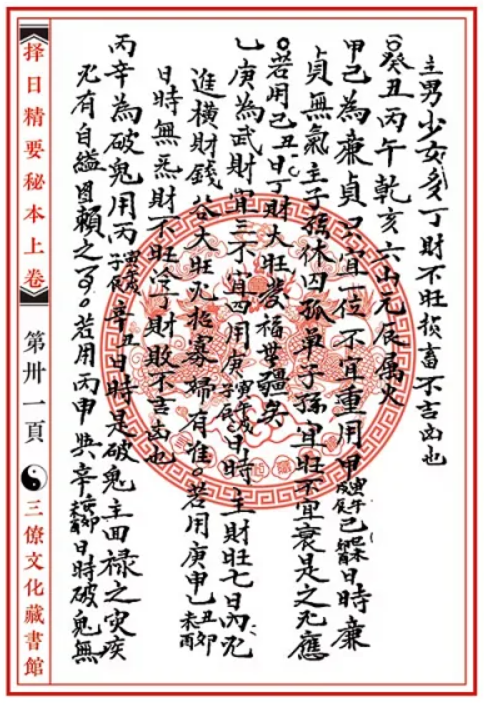 主男少女多丁財不旺損畜不吉凶也
○癸丑丙午乾亥六山元辰属火
甲己為廉貞只宜一位不宜重用甲寅午戌辰己巳未酉日時廉
貞無氣主子孫休囚孤單子孫宜旺不宜衰是之尤應
○若用己丑日丁財大旺發福無疆矣
乙庚為武財宜三不宜四用庚寅午戌子辰日時主財旺七日內尤
進橫財錢谷大旺尤招寡婦有准。若用庚申乙丑卯未酉
日時無炁財不旺冷丁財敗不吉凶也
丙辛為破鬼用丙寅戌子辰辛丑日時是破鬼主回禄之灾疾
尤有自縊圖賴之事。若用丙申與辛卯未酉日時破鬼無
择日精要秘本上卷
第卅一頁
三僚文化藏書館